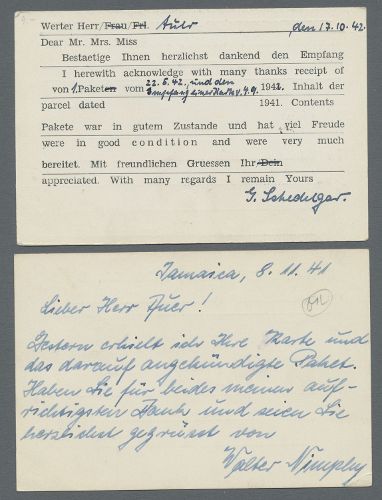 Werter Herr/Frau/Frl. Auer den 17.10.42.
Dear Mr. Mrs. Miss
Bestaetige Ihnen herzlichst dankend den Empfang
I herewith acknowledge with many thanks receipt of
von 1 Paketen vom 22.5.42. und den Empfang einer Karte v. 4.9. 1942. Inhalt der
parcel dated 1941. Contents
Pakete war in gutem Zustande und hat viel Freude
were in good condition and were very much
bereitet. Mit freundlichen Gruessen Ihr Dein
appreciated. With many regards I remain Yours
G.
Jamaica, 8.11.41
Lieber Herr Auer!
Gestern erhielt ich Ihre Karte und
das darauf angekündigte Paket.
Haben Sie für beides meinen auf-
richtigsten Dank und seien Sie
herzlichst gegrüsst von
Walter